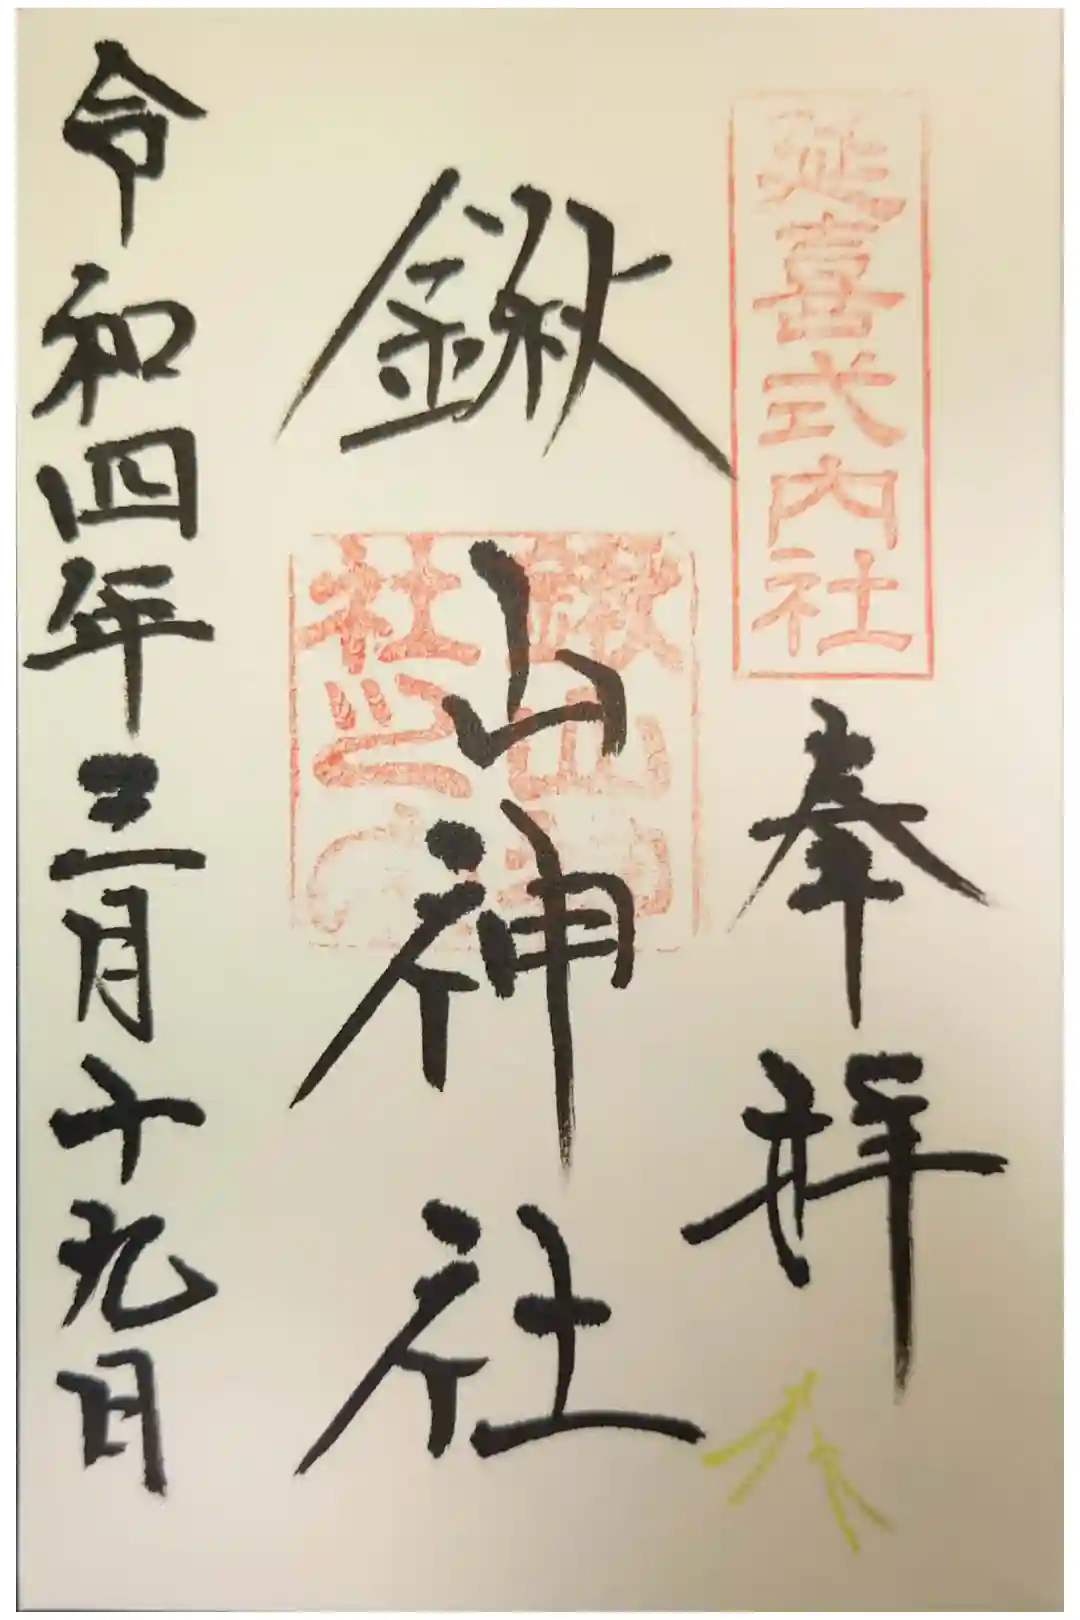 延喜式内社
奉拝
鍬山神社
令和四年三月十九日